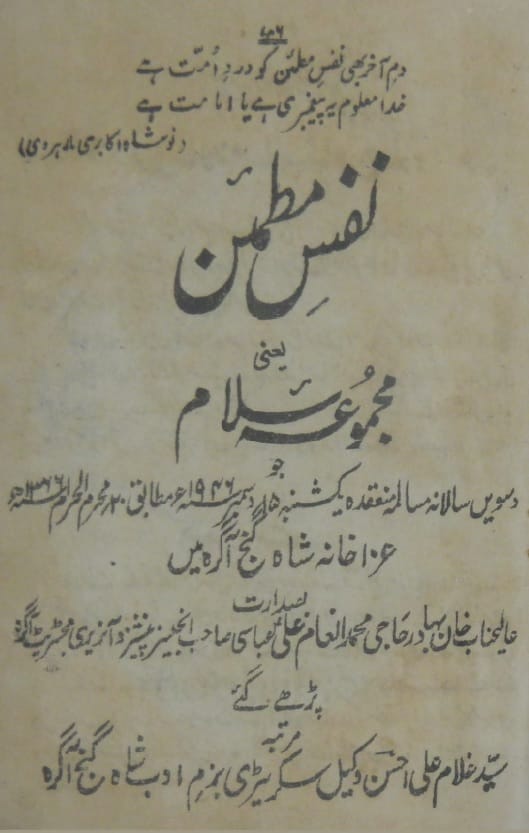 ۷۸۶
دمِ آخر بھی نفسِ مطمئن کو دردِ اُمّت ہے
خدا معلوم یہ پیغمبری ہے یا امامت ہے
(نوشاہ اکابری مارہروی)
نفسِ مطمئن
یعنی
مجموعۂ سلام
جو
دسویں سالانہ مسالمہ منعقدہ یکشنبہ ۱۵ دسمبر ۱۹۴۶ء مطابق ۲۰ محرم الحرام ۱۳۶۶ھ
عزاخانہ شاہ گنج آگرہ میں
بصدارت
عالیجناب خان بہادر حاجی محمد انعام علی عباسی صاحب انجینیر پینشنر و آنریری مجسٹریٹ آگرہ
پڑھے گئے
مرتبہ
سیّد غلام علی احسن وکیل سکریٹری بزمِ ادب شاہ گنج آگرہ